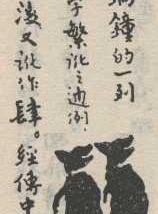 鐘的一列
字繁訛之通例
後又訛作肆。經傳中